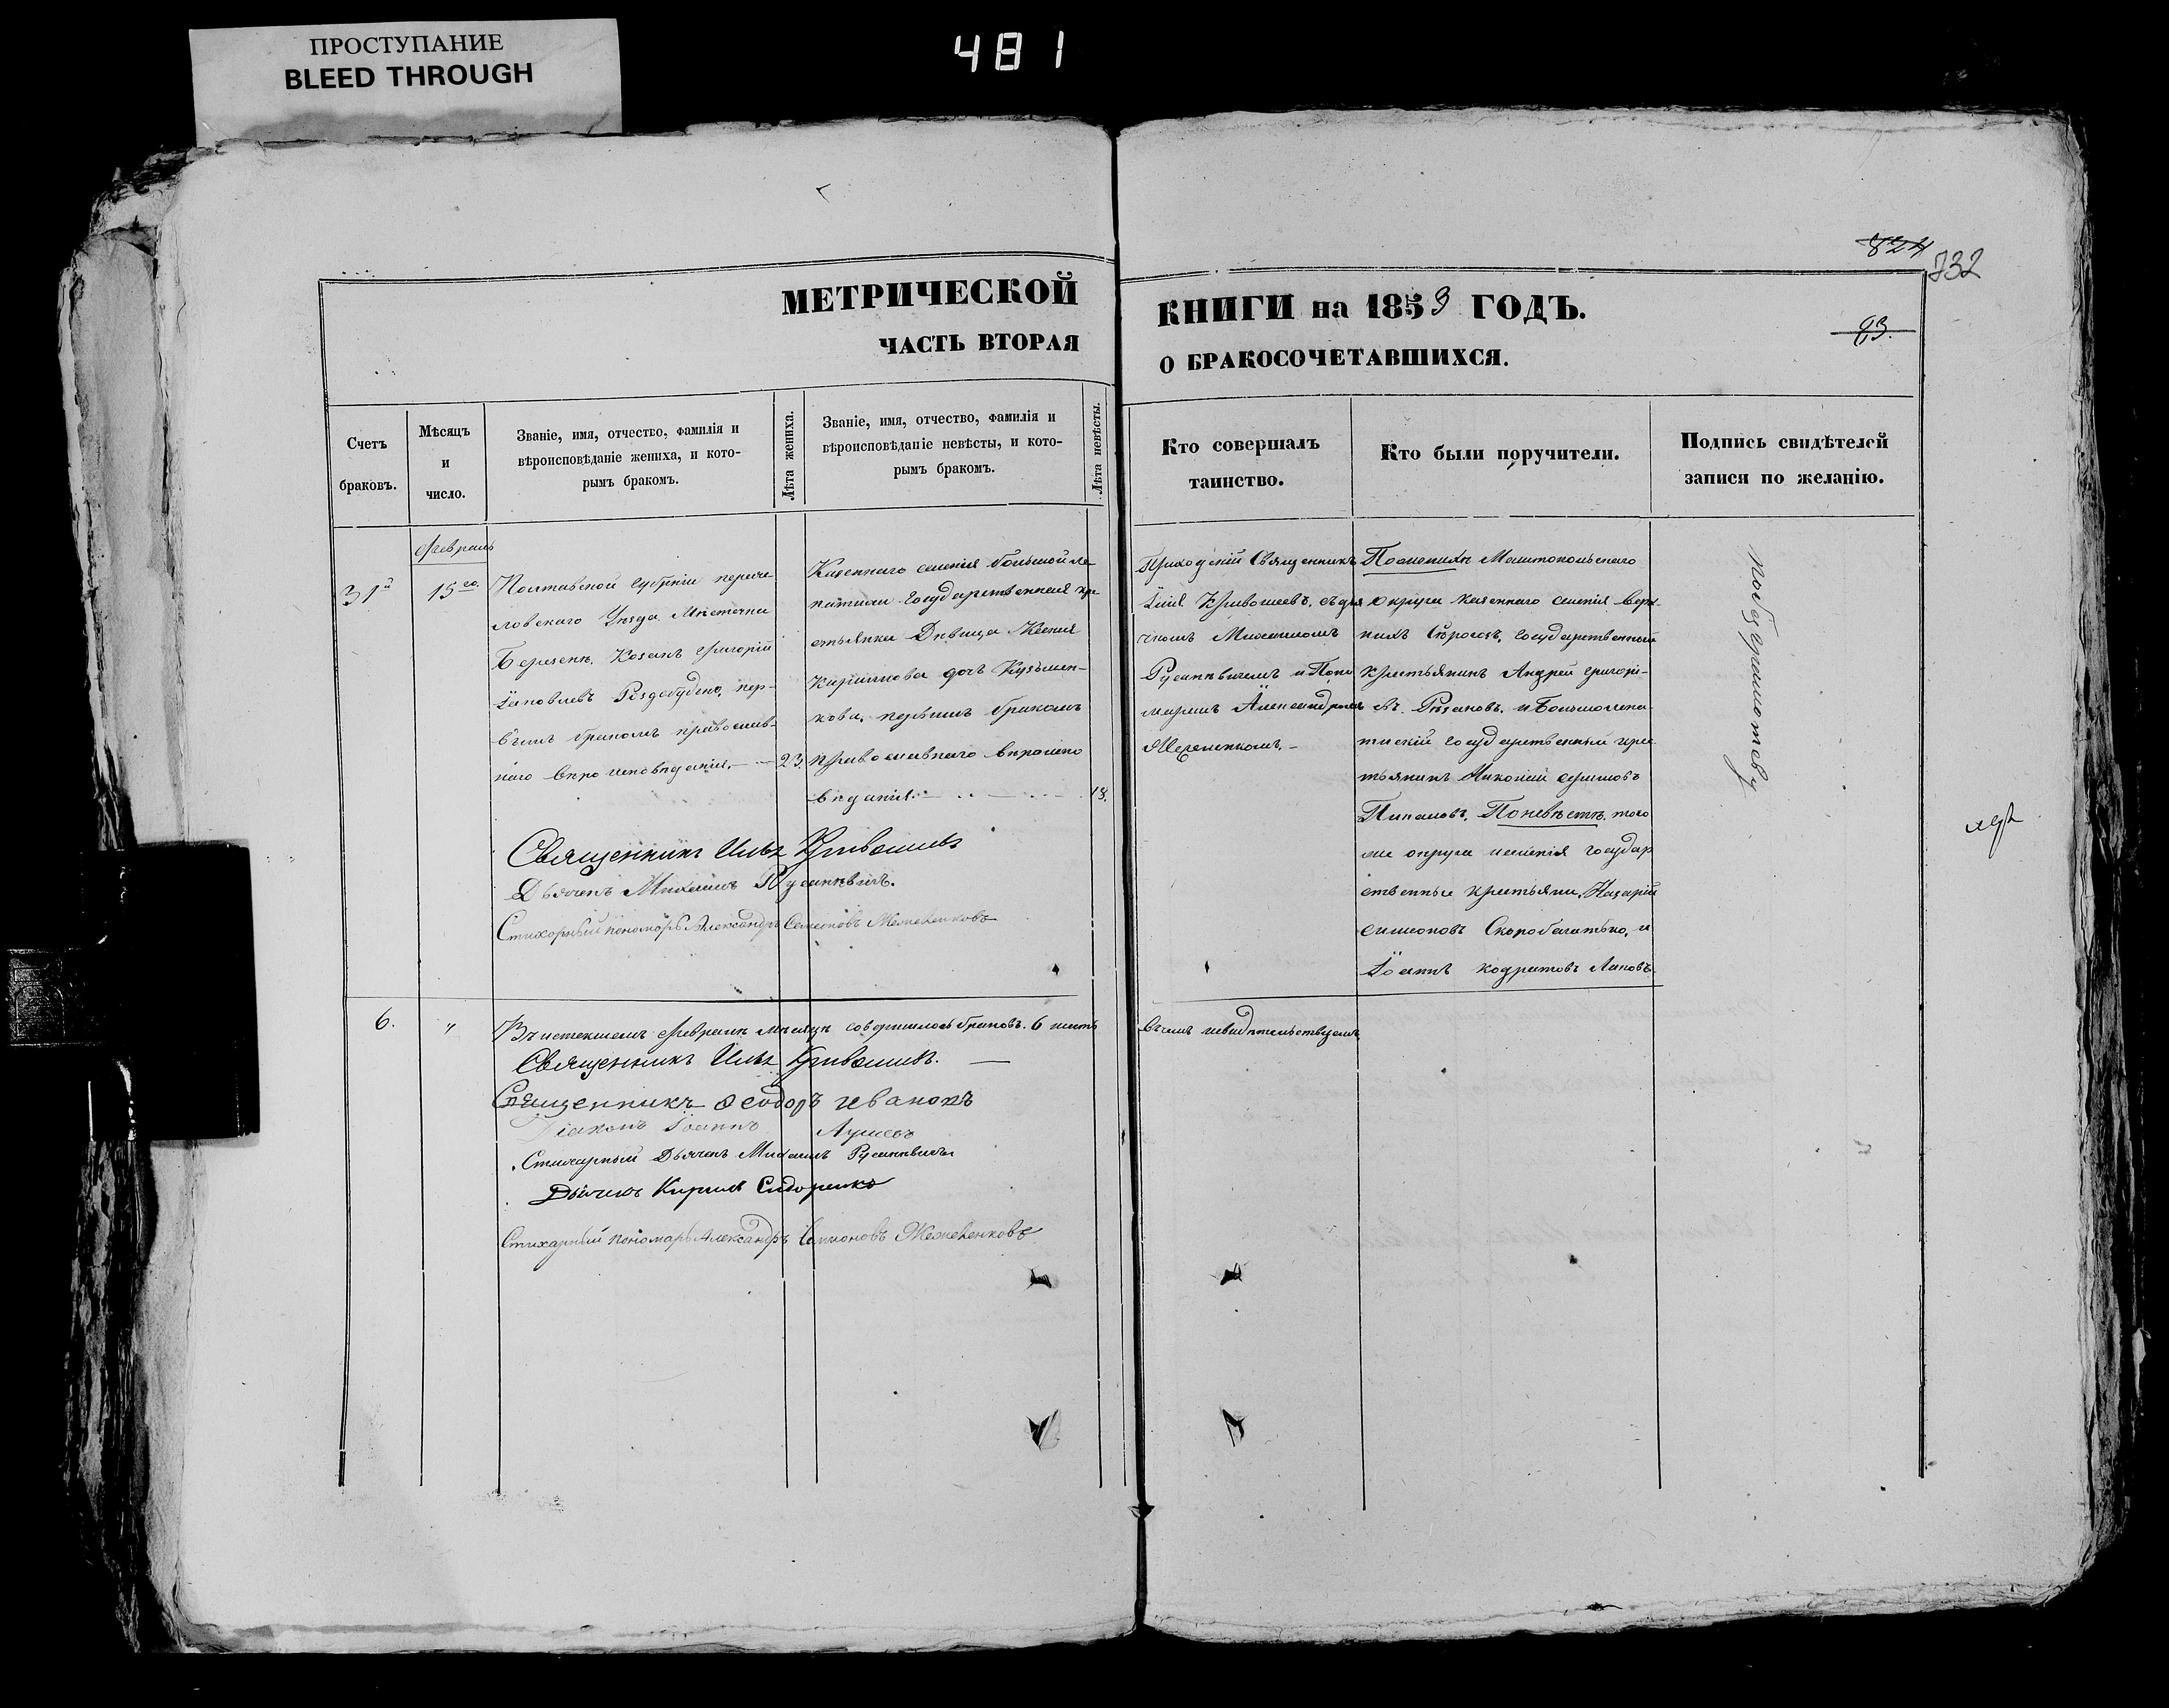 ПРОСТУПАНИЕ
BLEED THROUGH
481
824
732
МЕТРИЧЕСКОЙ
ЧАСТЬ ВТОРАЯ
КНИГИ на 1853 ГОДЪ.
О БРАКОСОЧЕТАВШИХСЯ.
93.
Счетъ
браковъ.
Мѣсяцъ
и
число.
Званіе, имя, отчество, фамилія и
вѣроисповѣданіе жениха, и кото-
рымъ бракомъ.
Лѣта жениха.
Званіе, имя, отчество, фамилія и
вѣроисповѣданіе невѣсты, и кото-
рымъ бракомъ.
Лѣта невѣсты.
Кто совершалъ
таинство.
Кто были поручители.
Подпись свидѣтелей
записи по желанію.
Февраль
31й
15го
Полтавской Губерніи
Уѣзда Мѣстечка
Козакъ Григорій
Іаковлевъ пер-
вымъ бракомъ православ-
наго вѣроисповѣданія.
23.
Казеннаго селенія большой ле-
патихи Государственная кре-
стьянка Дѣвица Ксенія
Кирилова дочь Кузьмен-
кова, первымъ бракомъ
православнаго вѣроиспо
вѣданія.
18.
Приходскій Священникъ
Илія Кривошеевъ, съ дья
чкомъ Михаиломъ
Русинѣвичемъ и Поно
маремъ Александромъ
По женихѣ Мелитопольскаго
округа казеннаго селенія верх-
нихъ Сѣрогозъ, государственный
крестьянинъ Андрей Григорі-
евъ Рѣзановъ, и Большолепа
тиский государственный крес
тьянинъ Николай
По невѣстѣ, того
же округа и селенія государ
ственные крестьяни, Назарій
Симеоновъ Скоробагатько, и
Іоаннъ
По безграмотству
Священникъ Илья Кривошеевъ
Дьячекъ Михаилъ Русинѣвичъ.
Стихарный пономарь Александръ Семеоновъ Межевенковъ
6.
"
Въ истекшемъ февралѣ мѣсяцѣ совершилось браковъ. 6 шесть
въ чемъ и свидѣтельствуемъ
Священникъ Илья Кривошеевъ.
Священникъ Феодоръ Ивановъ
Діаконъ Іоаннъ
Стихарный Дьячекъ Михаилъ Русинѣвичъ
Дьячекъ Кирилъ Сидоренко
Стихарный пономарь Александръ Семионовъ Межевенковъ